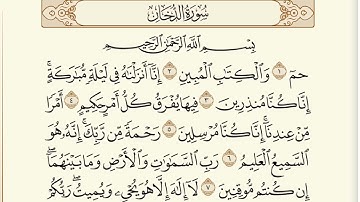 سُورَةُ الدُّخَانِ
بِسْمِ اللَّهِ الرَّحْمَٰنِ الرَّحِيمِ
حمٓ ١ وَالْكِتَابِ الْمُبِينِ ٢ إِنَّا أَنزَلْنَاهُ فِي لَيْلَةٍ مُّبَارَكَةٍ ۚ
إِنَّا كُنَّا مُنذِرِينَ ٣ فِيهَا يُفْرَقُ كُلُّ أَمْرٍ حَكِيمٍ ٤ أَمْرًا
مِّنْ عِندِنَا ۚ إِنَّا كُنَّا مُرْسِلِينَ ٥ رَحْمَةً مِّن رَّبِّكَ ۚ إِنَّهُ هُوَ
السَّمِيعُ الْعَلِيمُ ٦ رَبِّ السَّمَاوَاتِ وَالْأَرْضِ وَمَا بَيْنَهُمَا ۖ
إِن كُنتُم مُّوقِنِينَ ٧ لَا إِلَٰهَ إِلَّا هُوَ يُحْيِي وَيُمِيتُ ۖ رَبُّكُمْ